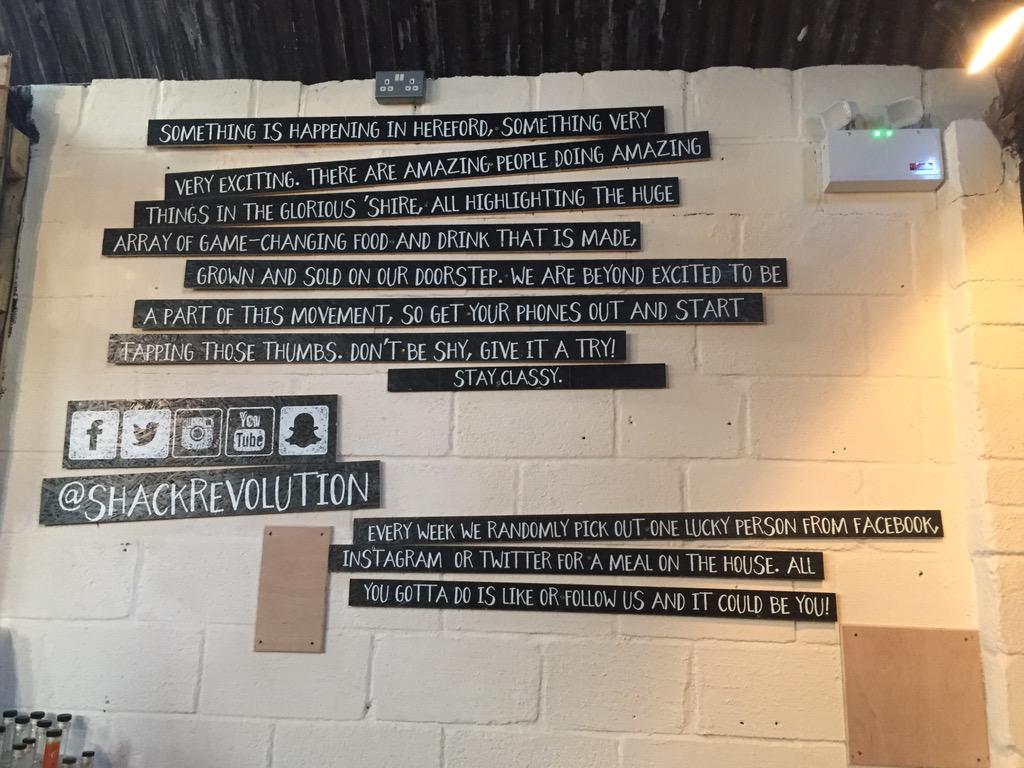 SOMETHING IS HAPPENING IN HEREFORD, SOMETHING VERY
VERY EXCITING. THERE ARE AMAZING PEOPLE DOING AMAZING
THINGS IN THE GLORIOUS 'SHIRE, ALL HIGHLIGHTING THE HUGE
ARRAY OF GAME-CHANGING FOOD AND DRINK THAT IS MADE,
GROWN AND SOLD ON OUR DOORSTEP. WE ARE BEYOND EXCITED TO BE
A PART OF THIS MOVEMENT, SO GET YOUR PHONES OUT AND START
TAPPING THOSE THUMBS. DON'T BE SHY, GIVE IT A TRY!
STAY CLASSY.
f You Tube
@SHACKREVOLUTION
EVERY WEEK WE RANDOMLY PICK OUT ONE LUCKY PERSON FROM FACEBOOK,
INSTAGRAM OR TWITTER FOR A MEAL ON THE HOUSE. ALL
YOU GOTTA DO IS LIKE OR FOLLOW US AND IT COULD BE YOU!